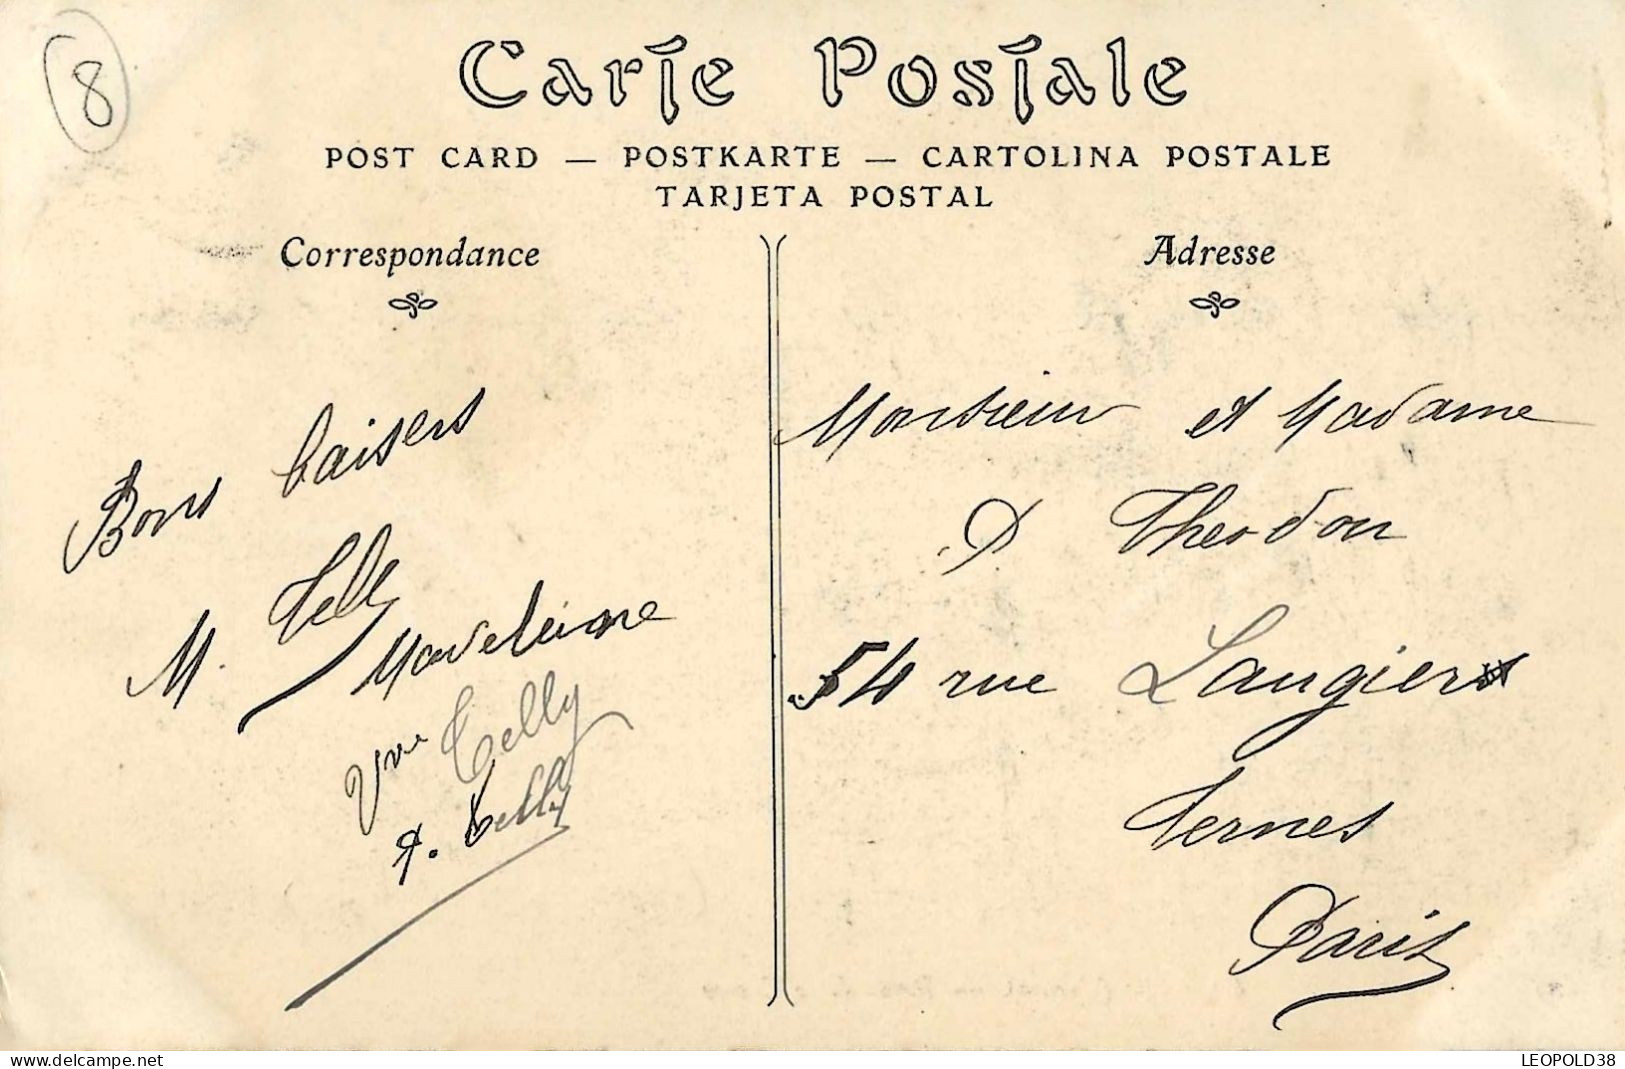 8
Carte Postale
POST CARD — POSTKARTE — CARTOLINA POSTALE
TARJETA POSTAL
Correspondance
Bons baisers
M. Telly
Madeleine
Vve Telly
A. Telly
Adresse
Monsieur et Madame
D Theodon
54 rue Laugier
Ternes
Paris
www.delcampe.net
LEOPOLD38